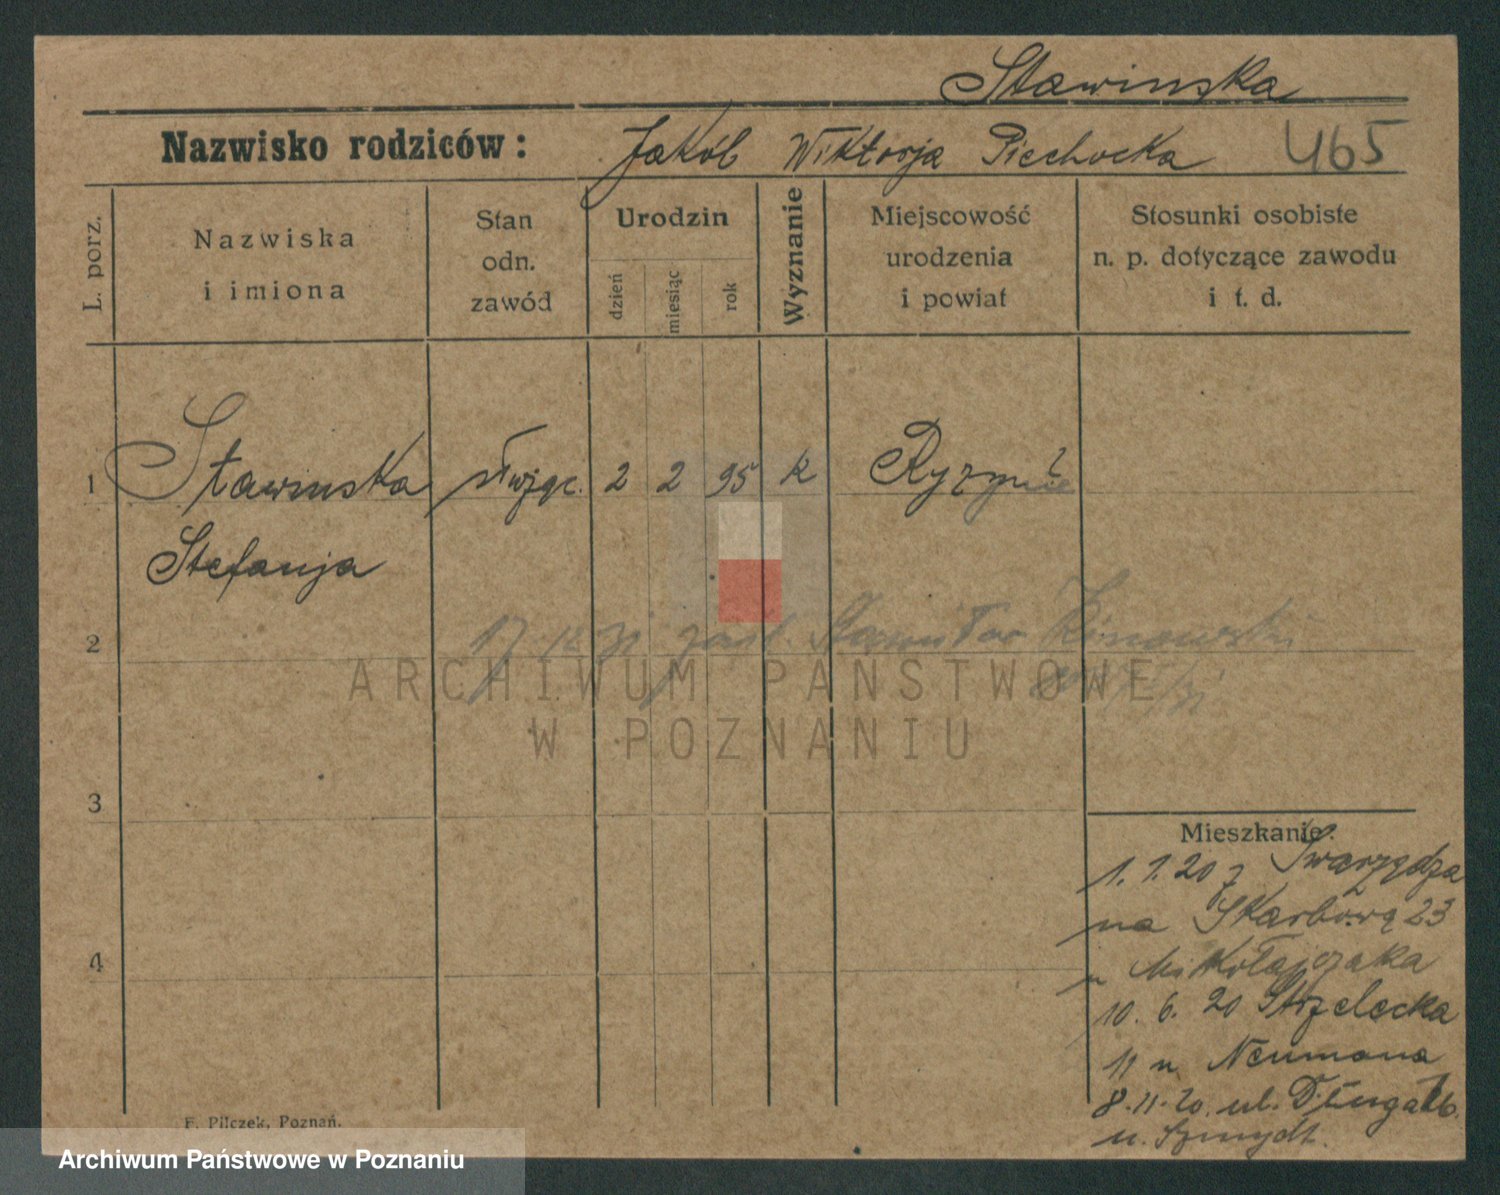 Stawinska
Nazwisko rodziców: Jakób Wiktorja Piechocka 465
L. porz.
Nazwiska
i imiona
Stan
odn.
zawód
Urodzin
dzień
miesiąc
rok
Wyznanie
Miejscowość
urodzenia
i powiat
Stosunki osobiste
n. p. dotyczące zawodu
i t. d.
1 Stawinska 2 2 95 k
Stefanja
17. 12. 31 zaśl. Stanisław
2
ARCHIWUM PAŃSTWOWE
W POZNANIU
3
Mieszkanie:
1. 1. 20 z Swarzędza
na Skarbową 23
u Mikołajczaka
4
10. 6. 20 Strzelecka
11 u Neumana
8. 11. 20. ul. Długa
u. Szmydt.
F. Pilczek, Poznań.
Archiwum Państwowe w Poznaniu